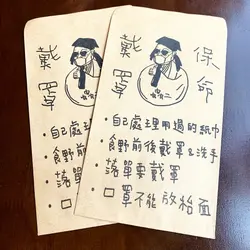 戴
罩
・自己處理
・食野前
・落單
・口
戴 保
罩 命
・自己處理用過的紙巾
・食野前後戴罩&洗手
・落單要戴罩
・口罩不能放枱面